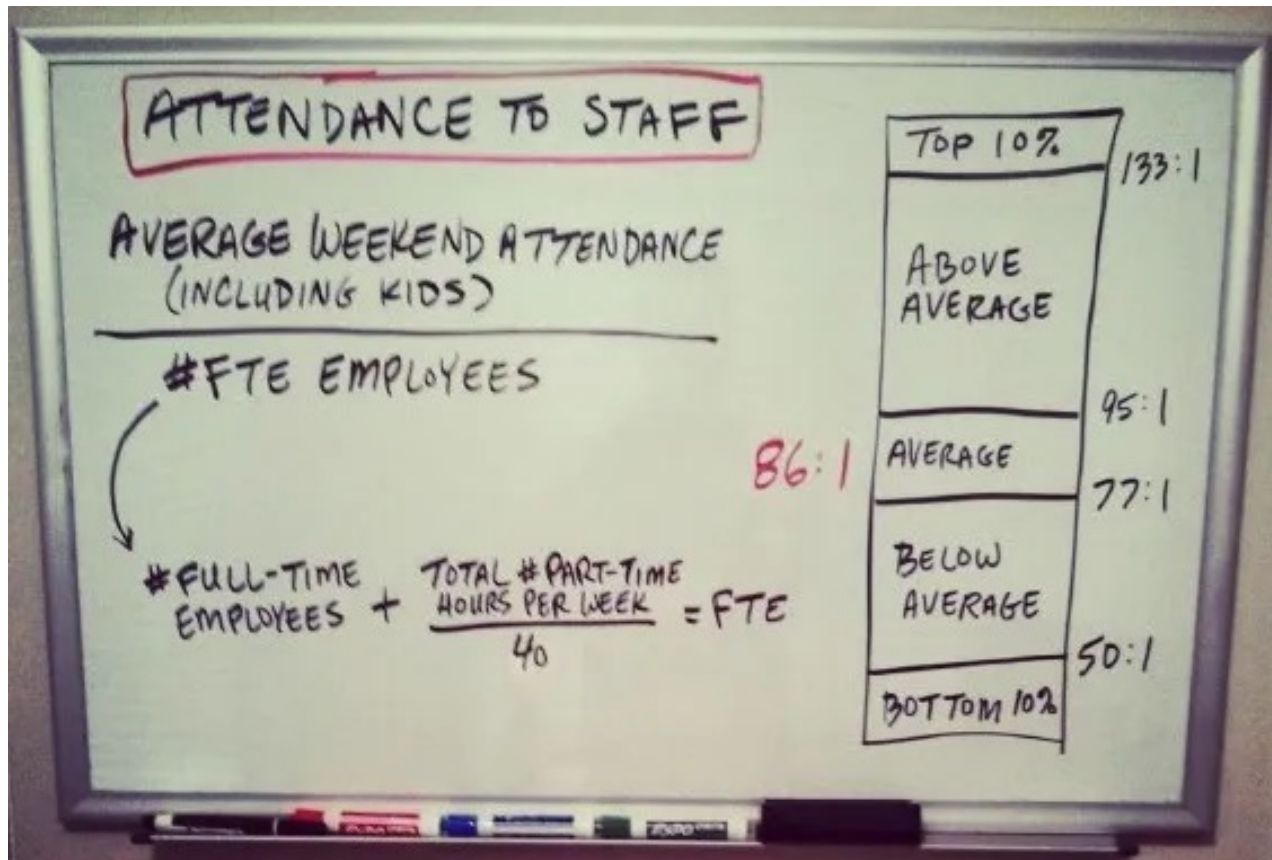 ATTENDANCE TO STAFF
AVERAGE WEEKEND ATTENDANCE
(INCLUDING KIDS)
#FTE EMPLOYEES
#FULL-TIME
EMPLOYEES +
TOTAL #PART-TIME
HOURS PER WEEK
40
= FTE
TOP 10%
133:1
ABOVE
AVERAGE
95:1
86:1
AVERAGE
77:1
BELOW
AVERAGE
50:1
BOTTOM 10%
EXPO